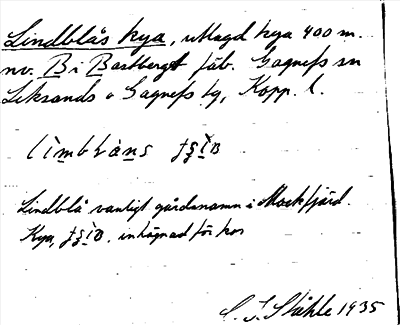 Lindblås kya, utlagd kya 400 m.
nv. B i Bastberget fäb. Gagnefs sn
Leksands o Gagnefs tg, Kopp. l.
Lindblå vanligt gårdsnamn i Mockfjärd.
Kya, inhägnad för kor
C. I. Ståhle 1935